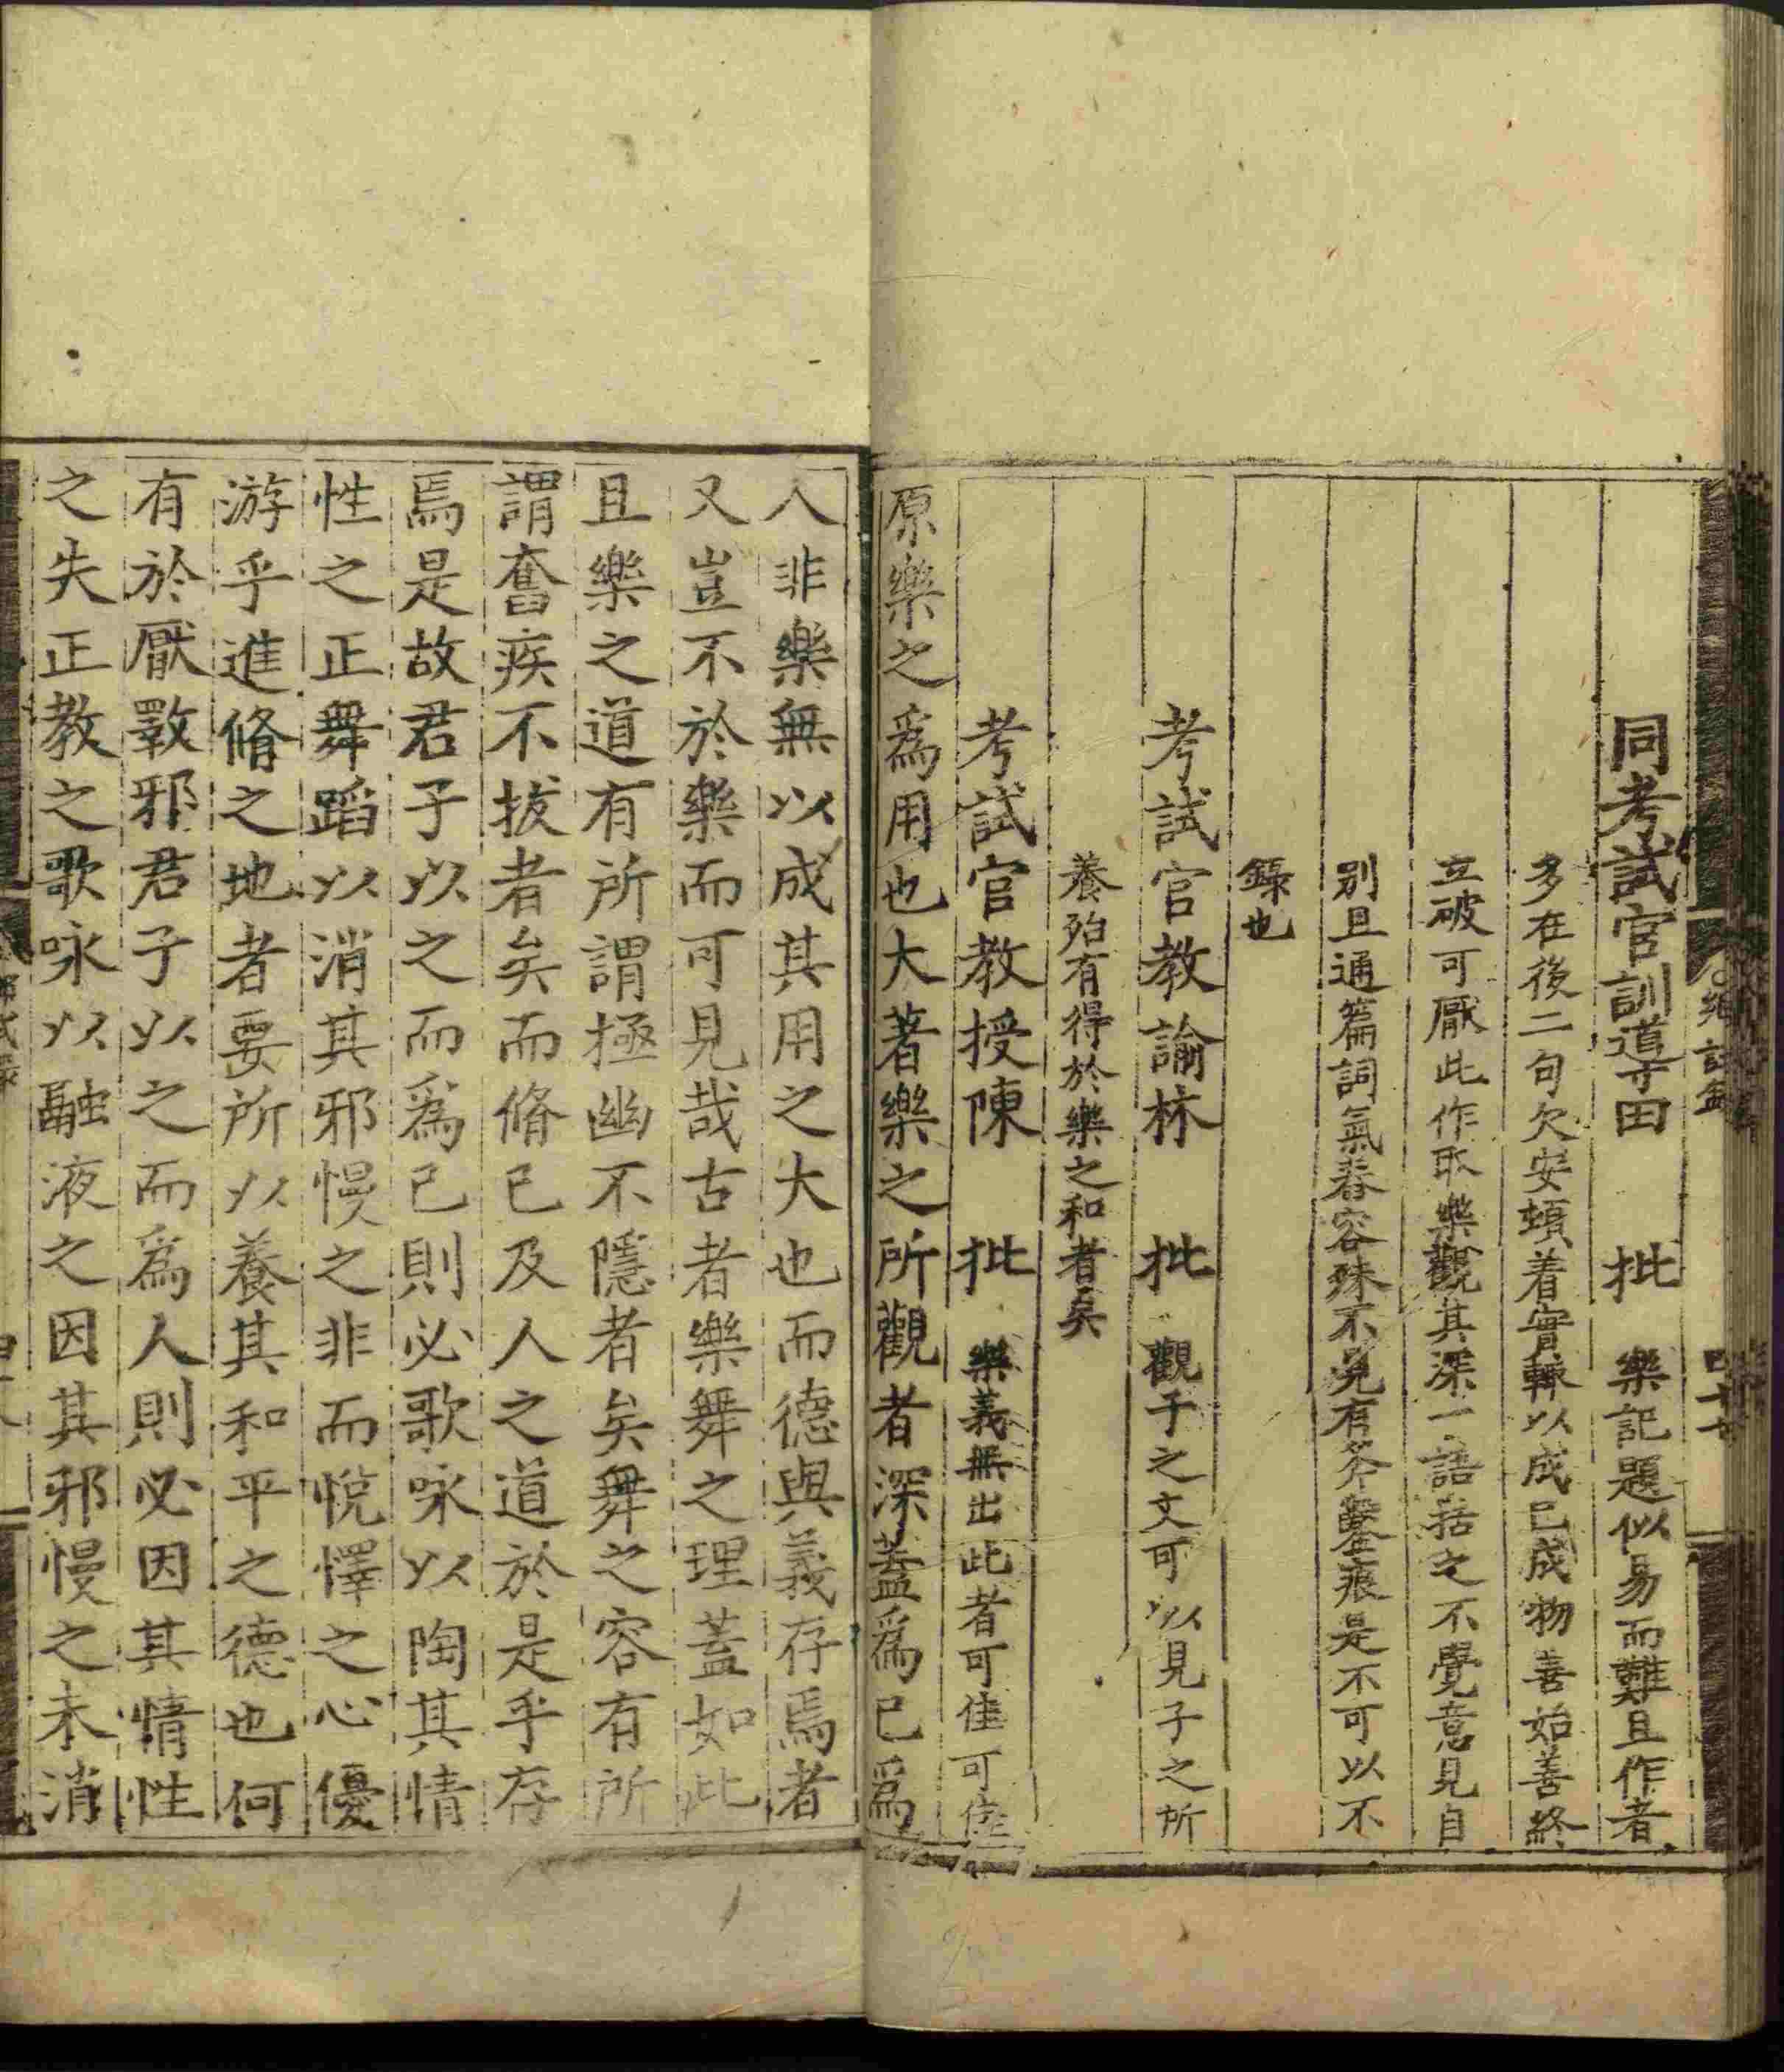 同考試官訓導田 批 樂記題似易而難且作者
多在後二句欠安頓着實輙以成己成物善始善終
立破可厭此作取樂觀其深一語括之不覺意見自
別且通篇詞氣舂容殊不見有斧鑿痕是不可以不
錄也
考試官教諭林 批 觀子之文可以見子之所
養殆有得於樂之和者矣
考試官教授陳 批 樂義無出此者可佳可佳
原樂之爲用也大著樂之所觀者深蓋爲己爲
人非樂無以成其用之大也而德與義存焉者
又豈不於樂而可見哉古者樂舞之理蓋如此
且樂之道有所謂極幽不隱者矣舞之容有所
謂奮疾不拔者矣而脩己及人之道於是乎存
焉是故君子以之而爲己則必歌咏以陶其情
性之正舞蹈以消其邪慢之非而悅懌之心優
游乎進脩之地者要所以養其和平之德也何
有於厭斁邪君子以之而爲人則必因其情性
之失正教之歌咏以融液之因其邪慢之未消